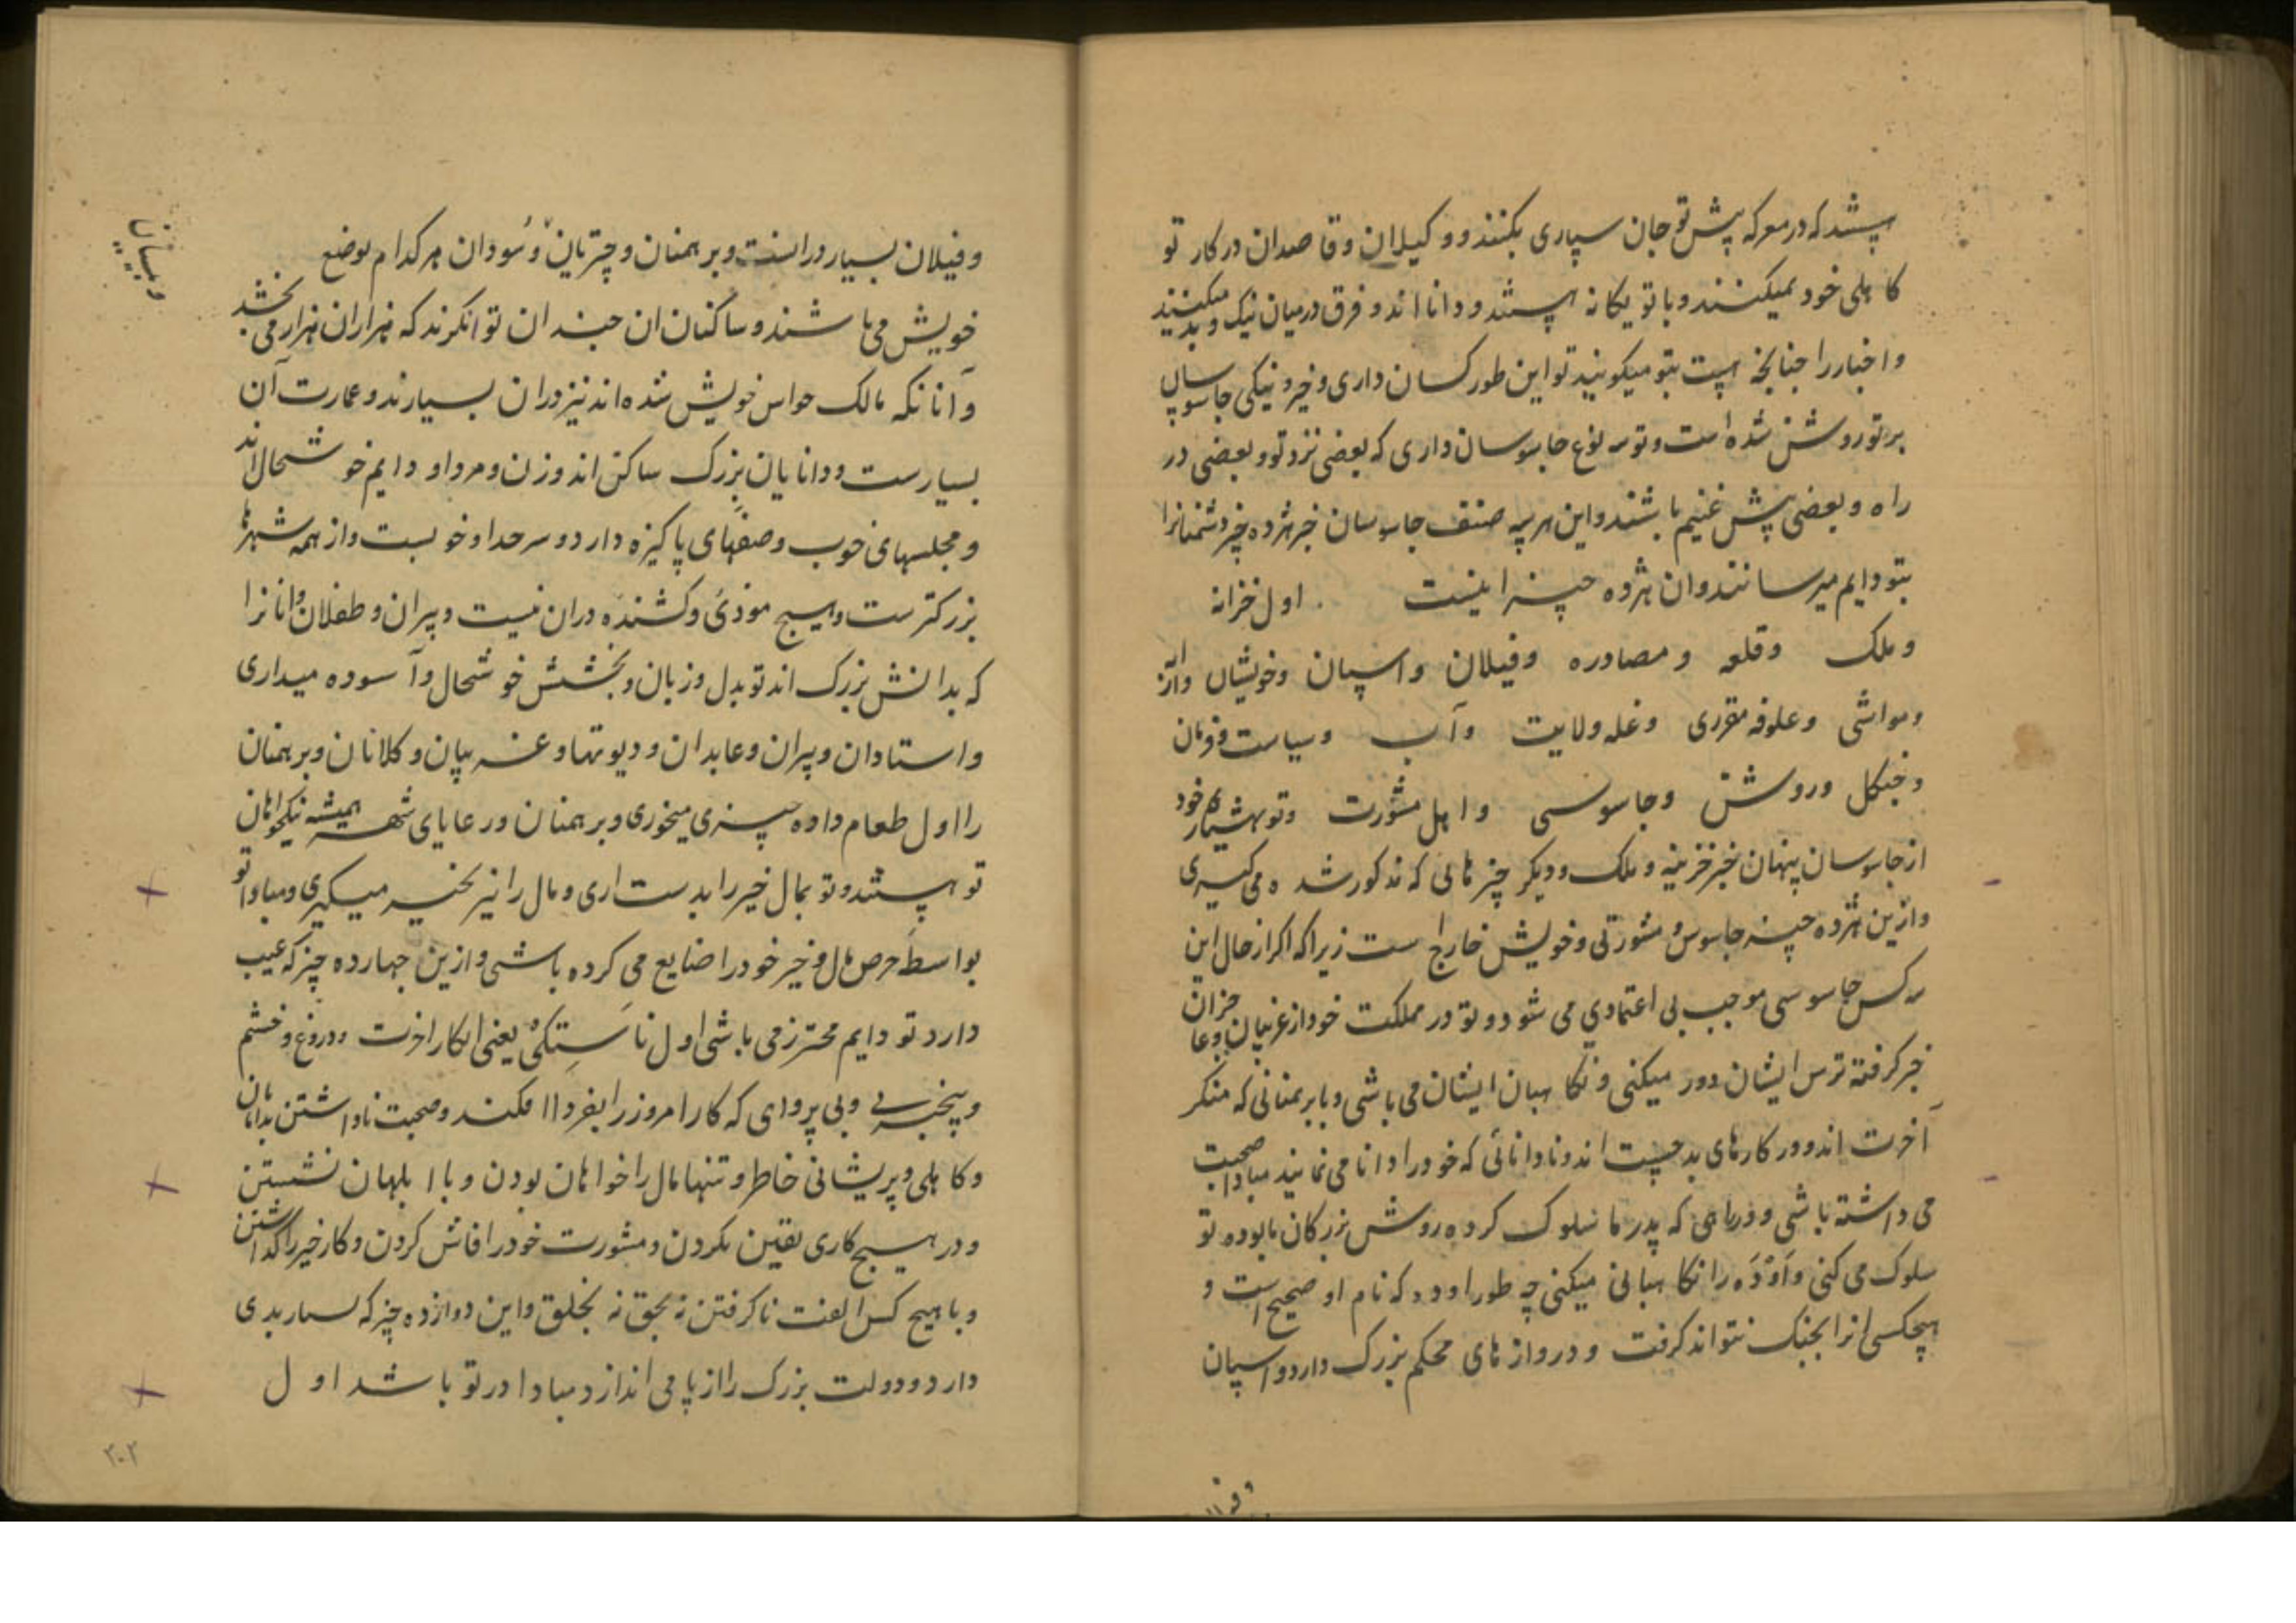 هستند که در معرکه پیش تو جان سپاری بکنند و وکیلان و قاصدان در کار تو
کاهلی خود نمیکنند و با تو یکانه هستند و دانا اند و فرق درمیان نیک و بد میکنند
و اخبار را چنانچه هست بتو میکویند تو این طور کسان داری و خیر و نیکی جاسوسان
بر تو روشن شده است و تو سه نوع جاسوسان داری که بعضی نزد تو و بعضی در
راه و بعضی پیش غنیم باشند و این هر سه صنف جاسوسان خبر هژده چیز دشمنانرا
بتو دایم میرسانند و ان هژده چیز اینست . اول خزانه
و ملک و قلعه و مصادره و فیلان و اسپان و خویشان
و مواشی و علوفه مقرری و غله ولایت و آب و سیاست و فرمان
و جنکل و روشن و جاسوسی و اهل مشورت و تو هشیار خود
از جاسوسان پنهان خبر خزینه و ملک و دیکر چیز هائی که مذکور شد ه می کیری
و ازین هژده چیز جاسوس و مشورتی و خویش خارج است زیرا که اکر از حال این
سه کس جاسوسی موجب بی اعتمادی می شود و تو در مملکت خود از غریبان و عاجزان
خبر کرفته ترس ایشان دور میکنی و نکاهبان ایشان می باشی و با برهمنانی که منکر
آخرت اند و در کارهای بد چست اند و نادانائی که خود را دانا می نمایند مبادا صحبت
می داشته باشی و در راهی که پدر ما سلوک کرده روش بزرکان ما بوده تو
سلوک می کنی و اَوْدَه را نکاهبانی میکنی چه طور اوده که نام او صحیح است و
هیچکسی انرا بجنک نتواند کرفت و درواز های محکم بزرک دارد و اسپان
و فیلان
و فیلان بسیار در انست و برهمنان و چتریان و سُودان هر کدام بوضع
خویش می باشند و ساکنان ان چندان توانکرند که هزاران هزار می بخشد
و آنانکه مالک حواس خویش شده اند نیز دران بسیارند و عمارت آن
بسیارست و دانایان بزرک ساکن اند و زن و مرد او دایم خوشحال اند
و مجلسهای خوب و صفهای پاکیزه دارد و سرحد او خوبست و از همه شهرها
بزرکترست و هیچ موذی و کشنده دران نیست و پیران و طفلان و دانا نرا
که بدانش بزرک اند تو بدل و زبان و بخشش خوشحال و آسوده میداری
و استادان و پیران و عابدان و دیوتها و غریبان و کلانان و برهمنان
را اول طعام داده چیزی میخوری و برهمنان و رعایای شهر همیشه نیکخواهان
تو هستند و تو بمال خیر را بدست اری و مال را نیز بخیر میکیری و مبادا تو
بواسطه حرص مال و خیر خود را ضایع می کرده باشی و ازین چهارده چیز که عیب
دارد تو دایم محترز می باشی اول ناستکی یعنی انکار اخرت و دروغ و خشم
و بیخبری و بی پروای که کار امروز را بفردا افکند و صحبت ناداشتن بدانایان
و کاهلی و پریشانی خاطر و تنها مال را خواهان بودن و با ابلهان نشستن
و در هیچ کاری یقین نکردن و مشورت خود را فاش کردن و کار خیر را کذاشتن
و با هیچ کس الفت ناکرفتن نه بحق نه بخلق و این دوازده چیز که بسیار بدی
دارد و دولت بزرک را از پا می اندازد مبادا در تو باشد اول
۲۰۲